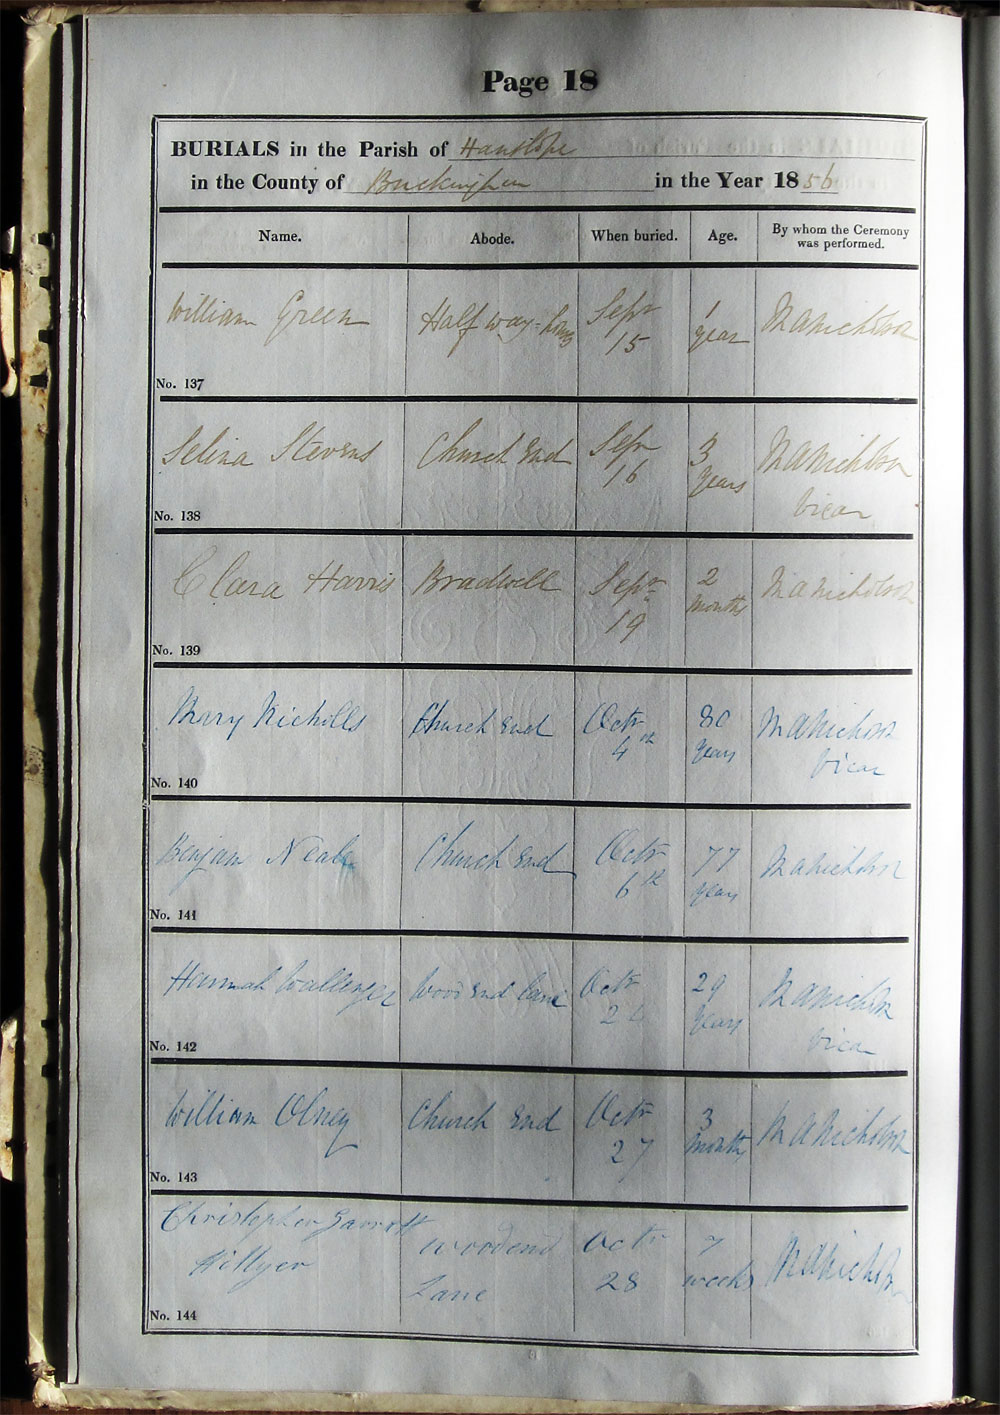 Page 18
BURIALS in the Parish of Hanslope
in the County of Buckingham in the Year 1856
Name. Abode. When buried. Age. By whom the Ceremony
was performed.
William Green Half way-house Sepr 1 MANicholson
15 year
No. 137
Selina Stevens Church End Sepr 3 MANicholson
16 years Vicar
No. 138
Clara Harris Bradwell Sepr 2 MANicholson
19 months
No. 139
Mary Nicholls Church End Octr 80 MANicholson
4th years Vicar
No. 140
Benjam Neale Church End Octr 77 MANicholson
6th years
No. 141
Hannah Wallinger Wood End Lane Octr 29 MANicholson
years Vicar
No. 142
William Olney Church End Octr 3 MANicholson
27 months
No. 143
Christopher Garrott woodend Octr 7 MANicholson
Hillyer Lane 28 weeks
No. 144